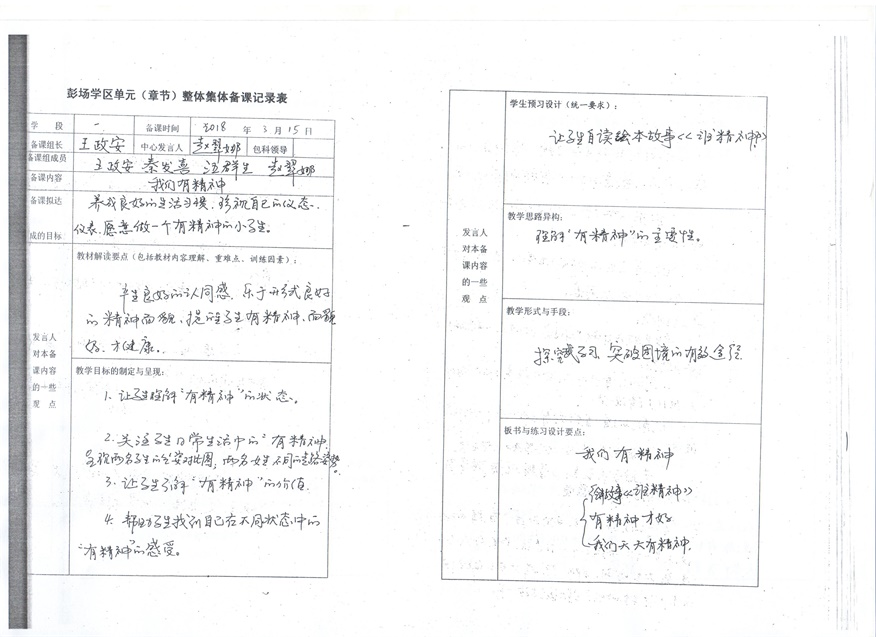 彭场学区单元（章节）整体集体备课记录表
学 段 一 备课时间 2018 年 3 月 15 日
备课组长 王政安 中心发言人 赵翠娜 包科领导
备课组成员 王政安 秦发喜 汪群生 赵翠娜
备课内容 我们有精神
备课拟达 养成良好的生活习惯，珍视自己的仪态、
成的目标 仪表，愿意做一个有精神的小学生。
教材解读要点（包括教材内容理解、重难点、训练因素）：
产生良好的认同感，乐于形成良好
的精神面貌、提醒学生有精神、面貌
好，才健康。
发言人
对本备
课内容
的一些
观 点
教学目标的制定与呈现：
1、让学生理解“有精神”的状态。
2、关注学生日常生活中的“有精神”，
呈现两名学生的 对比图，两名女生不同的
3、让学生了解“有精神”的价值。
4、帮助学生找到自己在不同状态中的
“有精神”的感受。
学生预习设计（统一要求）：
让学生自读绘本故事《谁精神？》
发言人
对本备
课内容
的一些
观 点
教学思路异构：
理解“有精神”的重要性。
教学形式与手段：
探究式学习，突破困境的有效途径
板书与练习设计要点：
我们有精神
故事《谁精神》
有精神才好
我们天天有精神.